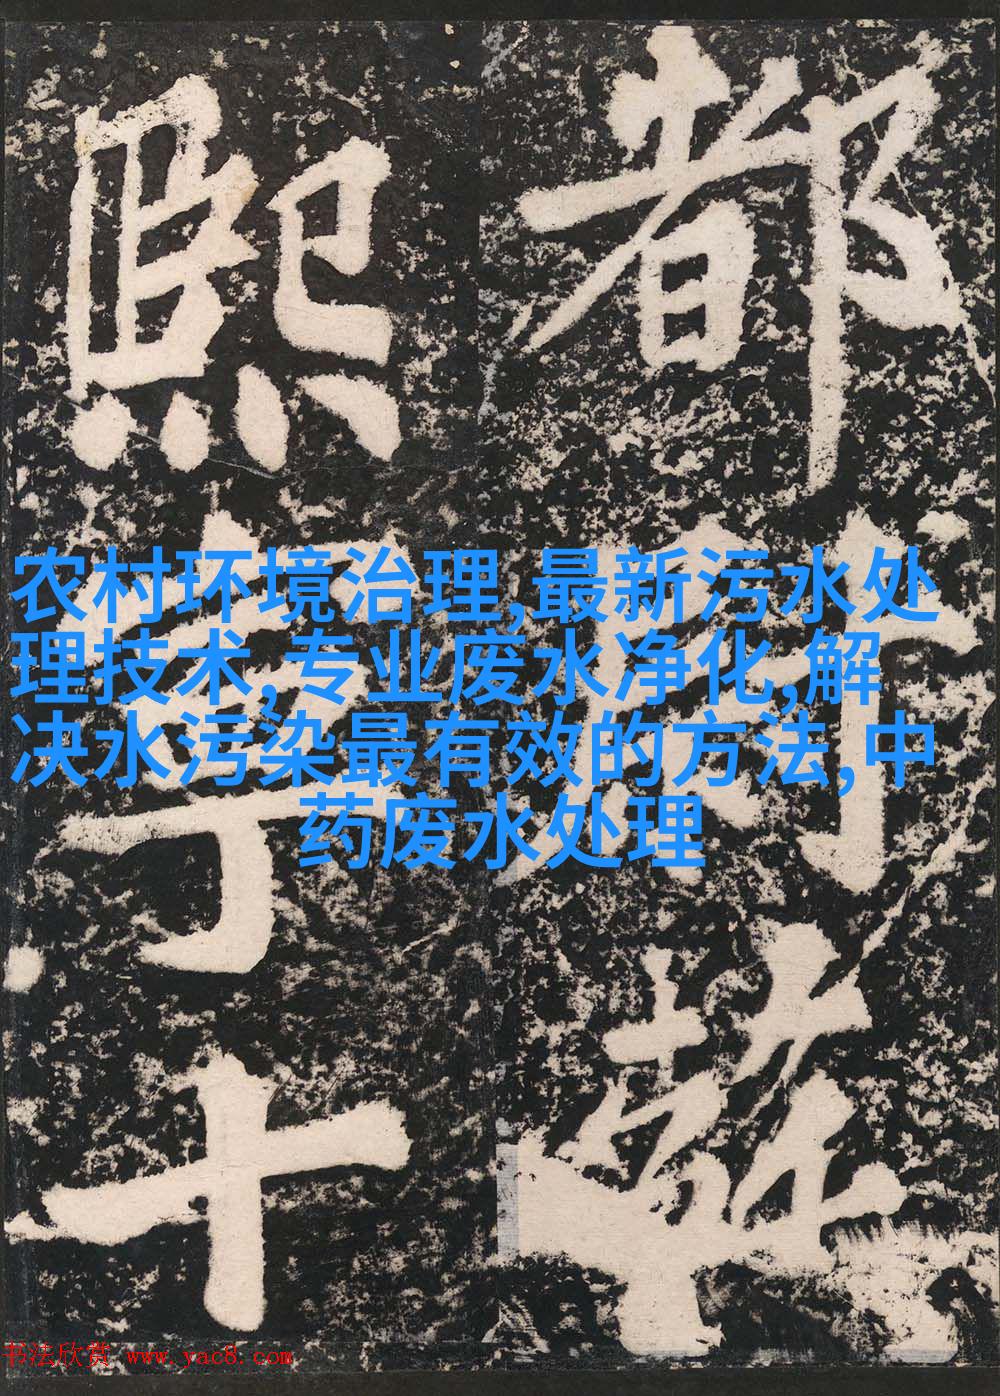 都
熙寧十
农村环境治理,最新污水处
理技术,专业废水净化,解
决水污染最有效的方法,中
药废水处理
书法欣赏 www.yac8.com